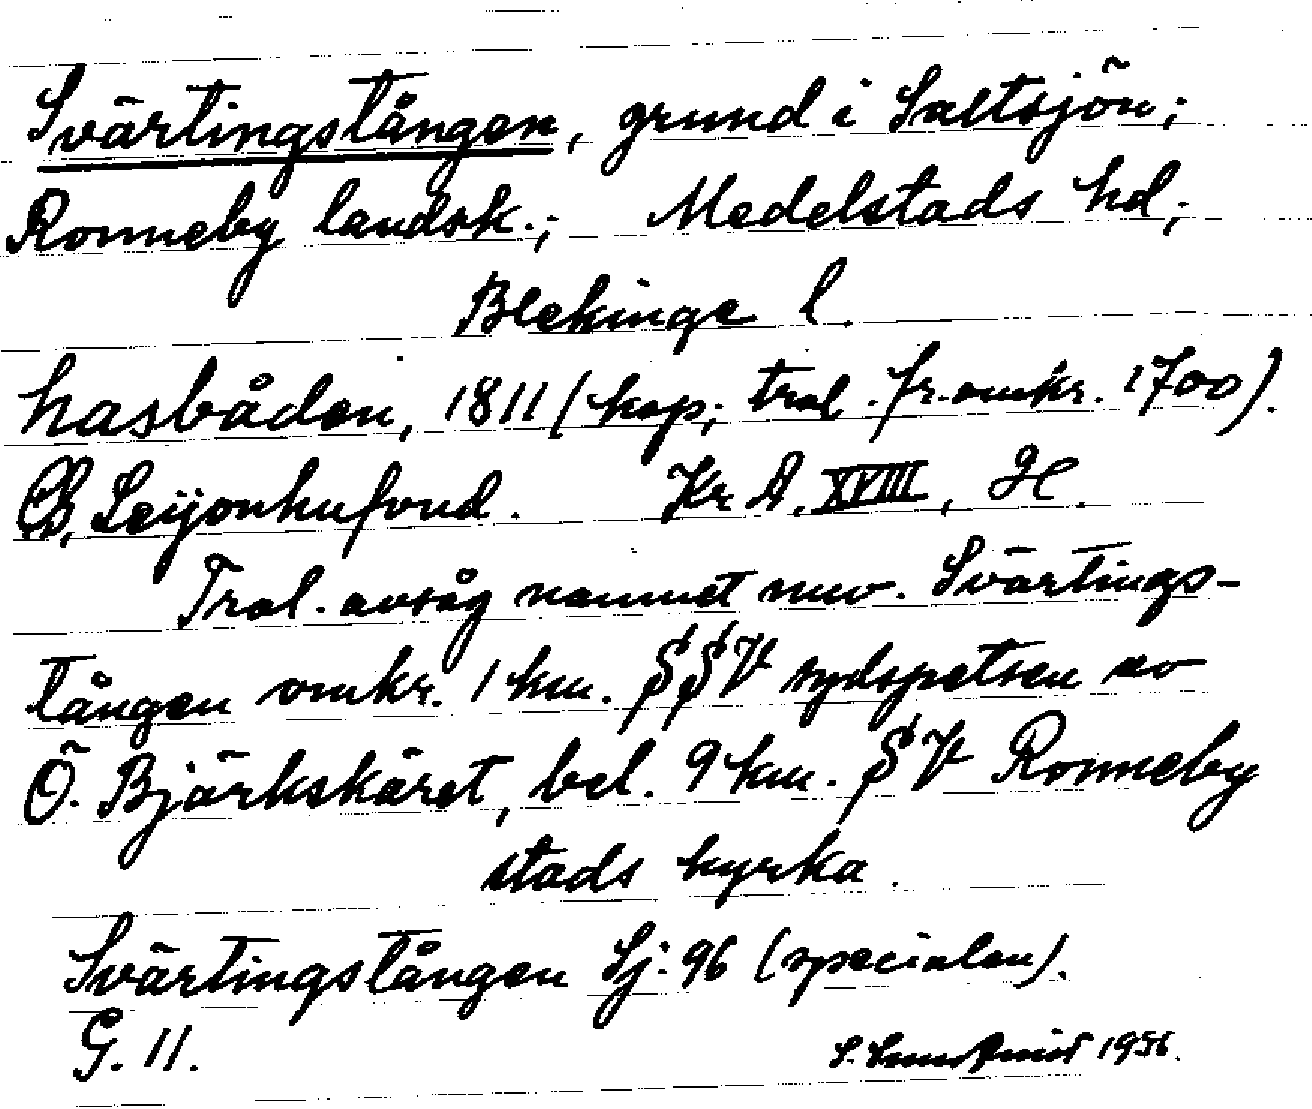 Svärtingstången, grund i Saltsjön;
Ronneby landsk.; Medelstads hd;
Blekinge l.
hasbåden, 1811 (kop; trol. fr. omkr. 1700).
CB, Leijonhufvud. Kr A, XVIII, H.
Trol. avsåg namnet nuv. Svärtings-
tången omkr. 1 km. SSV sydspetsen av
Ö. Bjärkskäret, bel. 9 km. SV Ronneby
stads kyrka.
Svärtingstången Sj: 96 (specialen).
G. 11.
S. 1956.